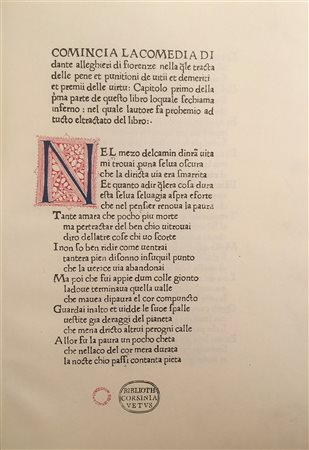 COMINCIA LACOMEDIA DI
dante alleghieri di fiorenze nella q̃le tracta
delle pene et punitioni de uitii et demeriti
et premii delle uirtu: Capitolo primo della
p̃ma parte de questo libro loquale sechiama
inferno: nel quale lautore fa prohemio ad
tucto eltractato del libro:·
NEL mezo delcamin dinr̃a uita
mi trouai p̃una selua oscura
che la diricta uia era smarrita
Et quanto adir q̃lera cosa dura
esta selua seluagia aspra eforte
che nel pensier renoua la paura
Tante amara che pocho piu morte
ma pertractar del ben chio uitrouai
diro dellatre cose chi uo scorte
I non so ben ridir come uentrai
tantera pien disonno insuquil punto
che la uerace uia abandonai
Ma poi che fui appie dum colle gionto
ladoue terminaua quella ualle
che mauea dipaura el cor compuncto
Guardai inalto et uidde le suoe spalle
uestite gia deraggi del pianeta
che mena dricto altrui perogni calle
Allor fu la paura un pocho cheta
che nellaco del cor mera durata
la nocte chio passi contanta pieta
BIBLIOTH
CORSINIA
VETVS